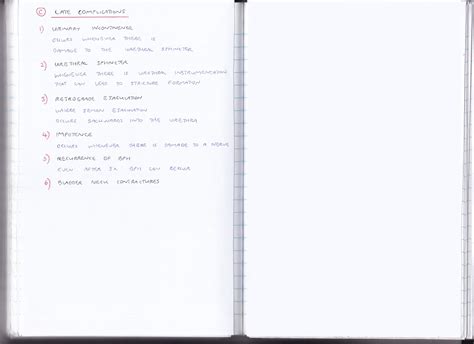 C LATE COMPLICATIONS
1) URINARY INCONTINENCE
OCCURS WHENEVER THERE IS
DAMAGE TO THE URETHRAL SPHINCTER
2) URETHRAL
WHENEVER THERE IS URETHRAL INSTRUMENTATION
THAT CAN LEAD TO STRICTURE FORMATION
3) RETROGRADE EJACULATION
WHERE SEMEN EJACULATION
OCCURS BACKWARDS INTO THE URETHRA
4) IMPOTENCE
OCCURS WHENEVER THERE IS DAMAGE TO A NERVE
5) RECURRENCE OF BPH
EVEN AFTER BPH CAN RECUR
6) BLADDER NECK CONTRACTURES